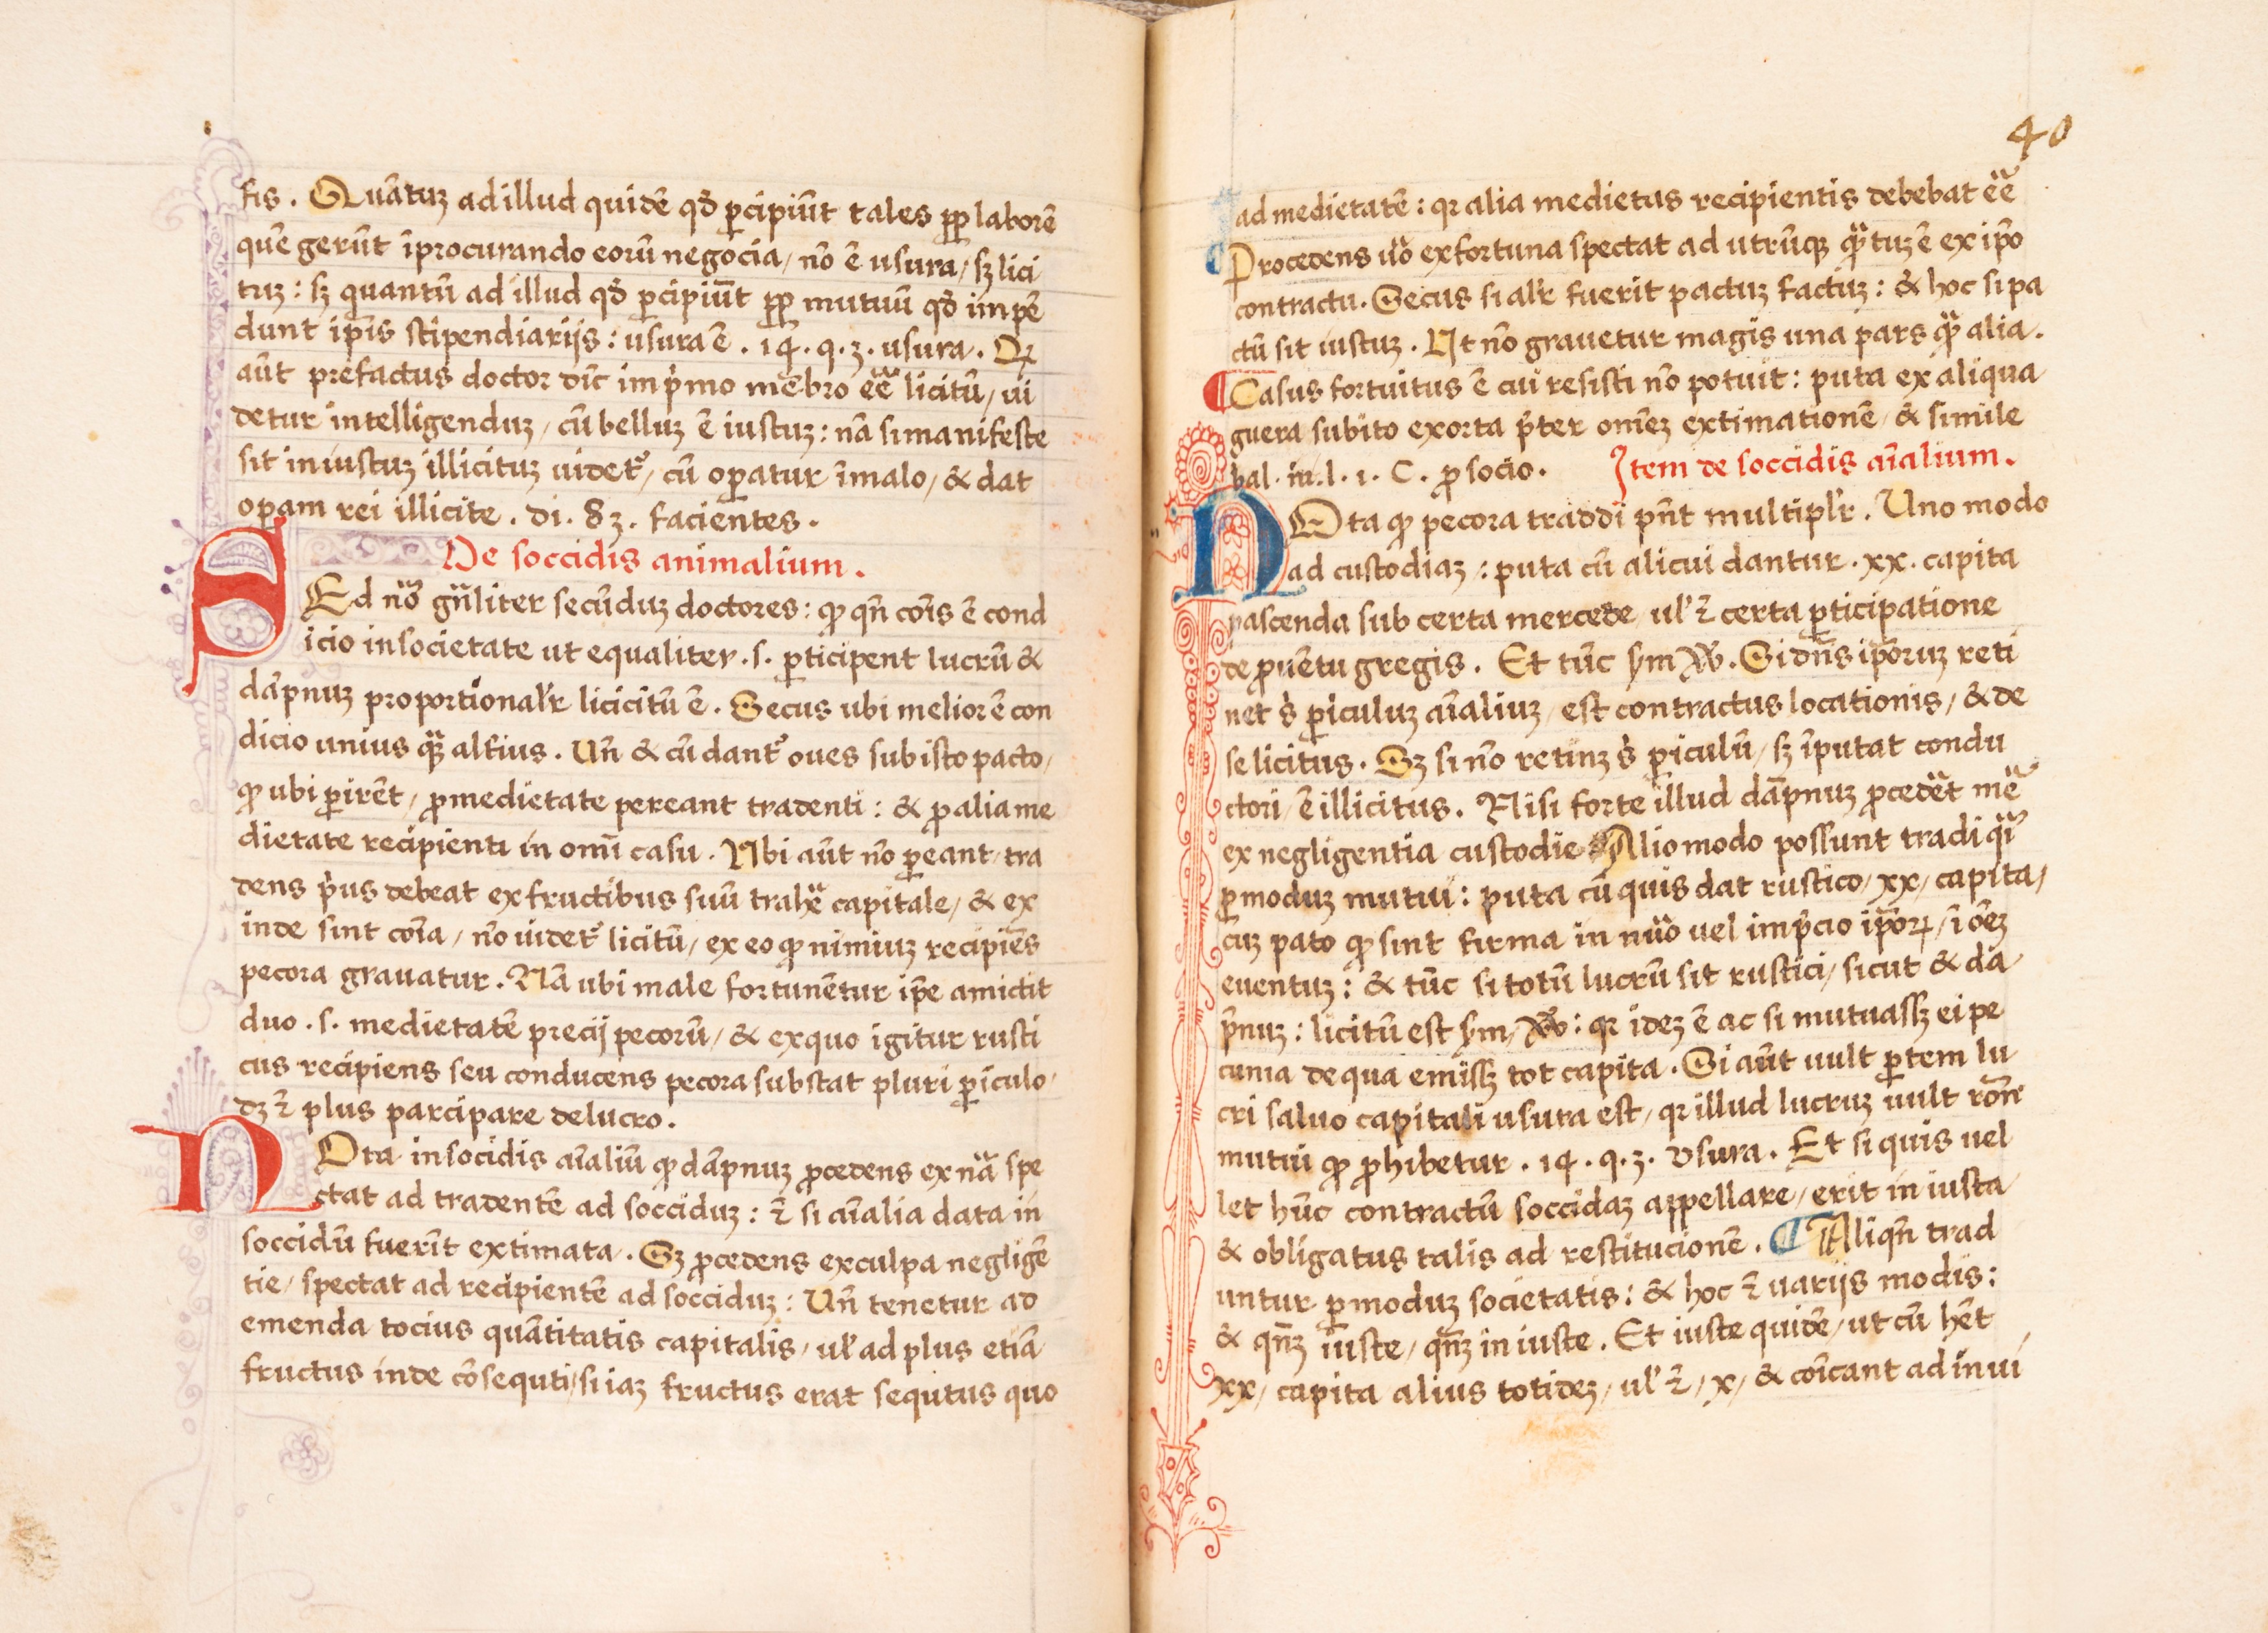 fis. Quãtuȝ ad illud quidẽ qđ ꝑcipiũt tales ꝓꝑ laborẽ
quẽ gerũt ĩprocurando eorũ negocia / nõ ẽ usura / sȝ lici
tuȝ : sȝ quantũ ad illud qđ ꝑcipiũt ꝓꝑ mutuũ qđ impẽ
dunt ip̃is stipendiarijs : usura ẽ . 14 . q . 3 . usura . Qꝛ
aũt prefactus doctor dic̃ imp̃mo mẽbro eẽ licitũ / ui
detur intelligenduȝ / cũ belluȝ ẽ iustuȝ : nã si manifeste
sit iniustuȝ illicituȝ uidet᷑ / cũ oꝑatur ĩmalo / & dat
oꝑam rei illicite . di . 83 . facientes .
De soccidis animalium .
SEd nõ gñliter secũduȝ doctores : ꝙ qñ cõis ẽ cond
icio insocietate ut equaliter . s . ꝑticipent lucrũ &
dãpnuȝ proportional'r licicitũ ẽ . Secus ubi melior ẽ con
dicio unius quã alt̃ius . Uñ & cũ dant᷑ oues sub isto pacto /
ꝙ ubi ꝑirẽt / ꝓmedietate pereant tradenti : & ꝓ alia me
dietate recipienti in omĩ casu . Ubi aũt nõ ꝑeant / tra
dens p̃us debeat exfructibus suũ trahẽ capitale / & ex
inde sint cõia / nõ uidet᷑ licitũ / ex eo ꝙ nimiuȝ recipiẽs
pecora grauatur . Nã ubi male fortunẽtur ip̃e amictit
duo . s . medietatẽ precij pecorũ / & exquo igitur rusti
cus recipiens seu conducens pecora substat pluri ꝑiculo /
dȝ ⁊̃ plus parcipare delucro .
NOta insocidis aĩaliũ ꝙ dãpnuȝ ꝓcedens ex nã spe
ctat ad tradentẽ ad socciduȝ : ⁊̃ si aĩalia data in
soccidũ fuerĩt extimata . Sȝ ꝓcedens exculpa negligẽ
tie / spectat ad recipientẽ ad socciduȝ : Uñ tenetur ad
emenda tocius quãtitatis capitalis / ul' ad plus etiã
fructus inde cõsequti / si iaȝ fructus erat sequtus quo
40
ad medietatẽ : qꝛ alia medietas recipientis debebat eẽ
¶ Procedens uõ exfortuna spectat ad utrũqȝ quãtuȝ ẽ ex ip̃o
contractu . Secus si al'r fuerit pactuȝ factuȝ : & hoc si pa
ctũ sit iustuȝ . Ut nõ grauetur magis una pars quã alia .
¶ Casus fortuitus ẽ cui resisti nõ potuit : puta ex aliqua
guera subito exorta p̃ter om̃eȝ extimationẽ / & simile
bal . in . l . 1 . C . ꝓ socio . Item de soccidis aĩalium .
NOta ꝙ pecora traddi pñt multipl'r . Uno modo
ad custodiaȝ : puta cũ alicui dantur . xx . capita
pascenda sub certa mercede / ul' ⁊̃ certa ꝑticipatione
de ꝓuẽtu gregis . Et tũc sm . Si dñs ip̃oruȝ reti
net s̃ ꝑiculuȝ aĩaliuȝ / est contractus locationis / & de
se licitus . Sȝ si nõ retinȝ s̃ ꝑiculũ / sȝ ĩputat condu
ctori / ẽ illicitus . Nisi forte illud dãpnuȝ ꝓcedẽt mẽ
ex negligentia custodie Alio modo possunt tradi
ꝑ moduȝ mutui : puta cũ quis dat rustico / xx / capita /
cuȝ pato ꝙ sint firma in nũo uel imp̃cio ip̃oꝝ / ĩ õeȝ
euentuȝ : & tũc si totũ lucrũ sit rustici / sicut & dã
p̃nuȝ : licitũ est sm / : qꝛ ideȝ ẽ ac si mutuassȝ ei pe
cunia de qua emissȝ tot capita . Si aũt uult ꝑtem lu
cri saluo capitali usura est / qꝛ illud lucruȝ uult rõne
mutui ꝙ ꝓhibetur . 14 . q . 3 . usura . Et si quis uel
let hũc contractũ soccidaȝ appellare / erit iniusta
& obligatus talis ad restitucionẽ . ¶ Aliqñ trad
untur ꝑ moduȝ societatis : & hoc ⁊̃ uarijs modis :
& qñȝ iuste / qñȝ iniuste . Et iuste quidẽ / ut cũ hẽt
xx / capita alius totideȝ / ul' ⁊̃ / x / & cõicant adinui